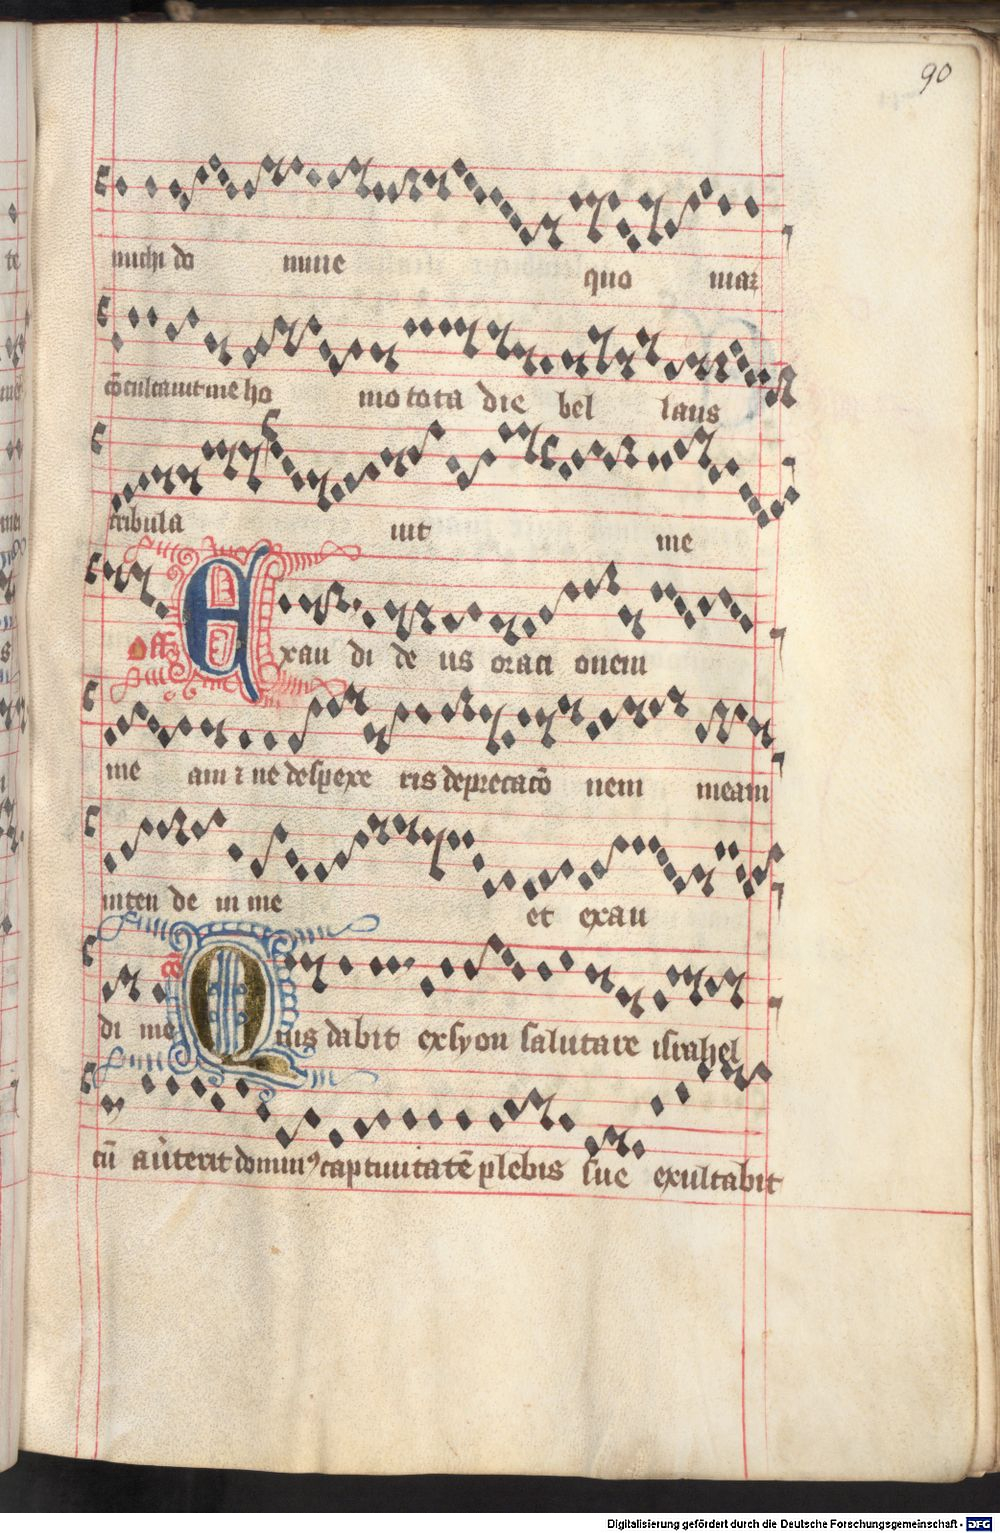 90
michi do mine quo niaꝫ
cō culcauit me ho mo tota die bel lans
tribula uit me
Off Exau di de us orati onem
me am ⁊ ne despexe ris deprecacō nem meam
inten de in me et exau
di me a Quis dabit ex syon salutare israhel
cū auerterit dominꝰ captiuitatē plebis sue exultabit
Digitalisierung gefördert durch die Deutsche Forschungsgemeinschaft - DFG